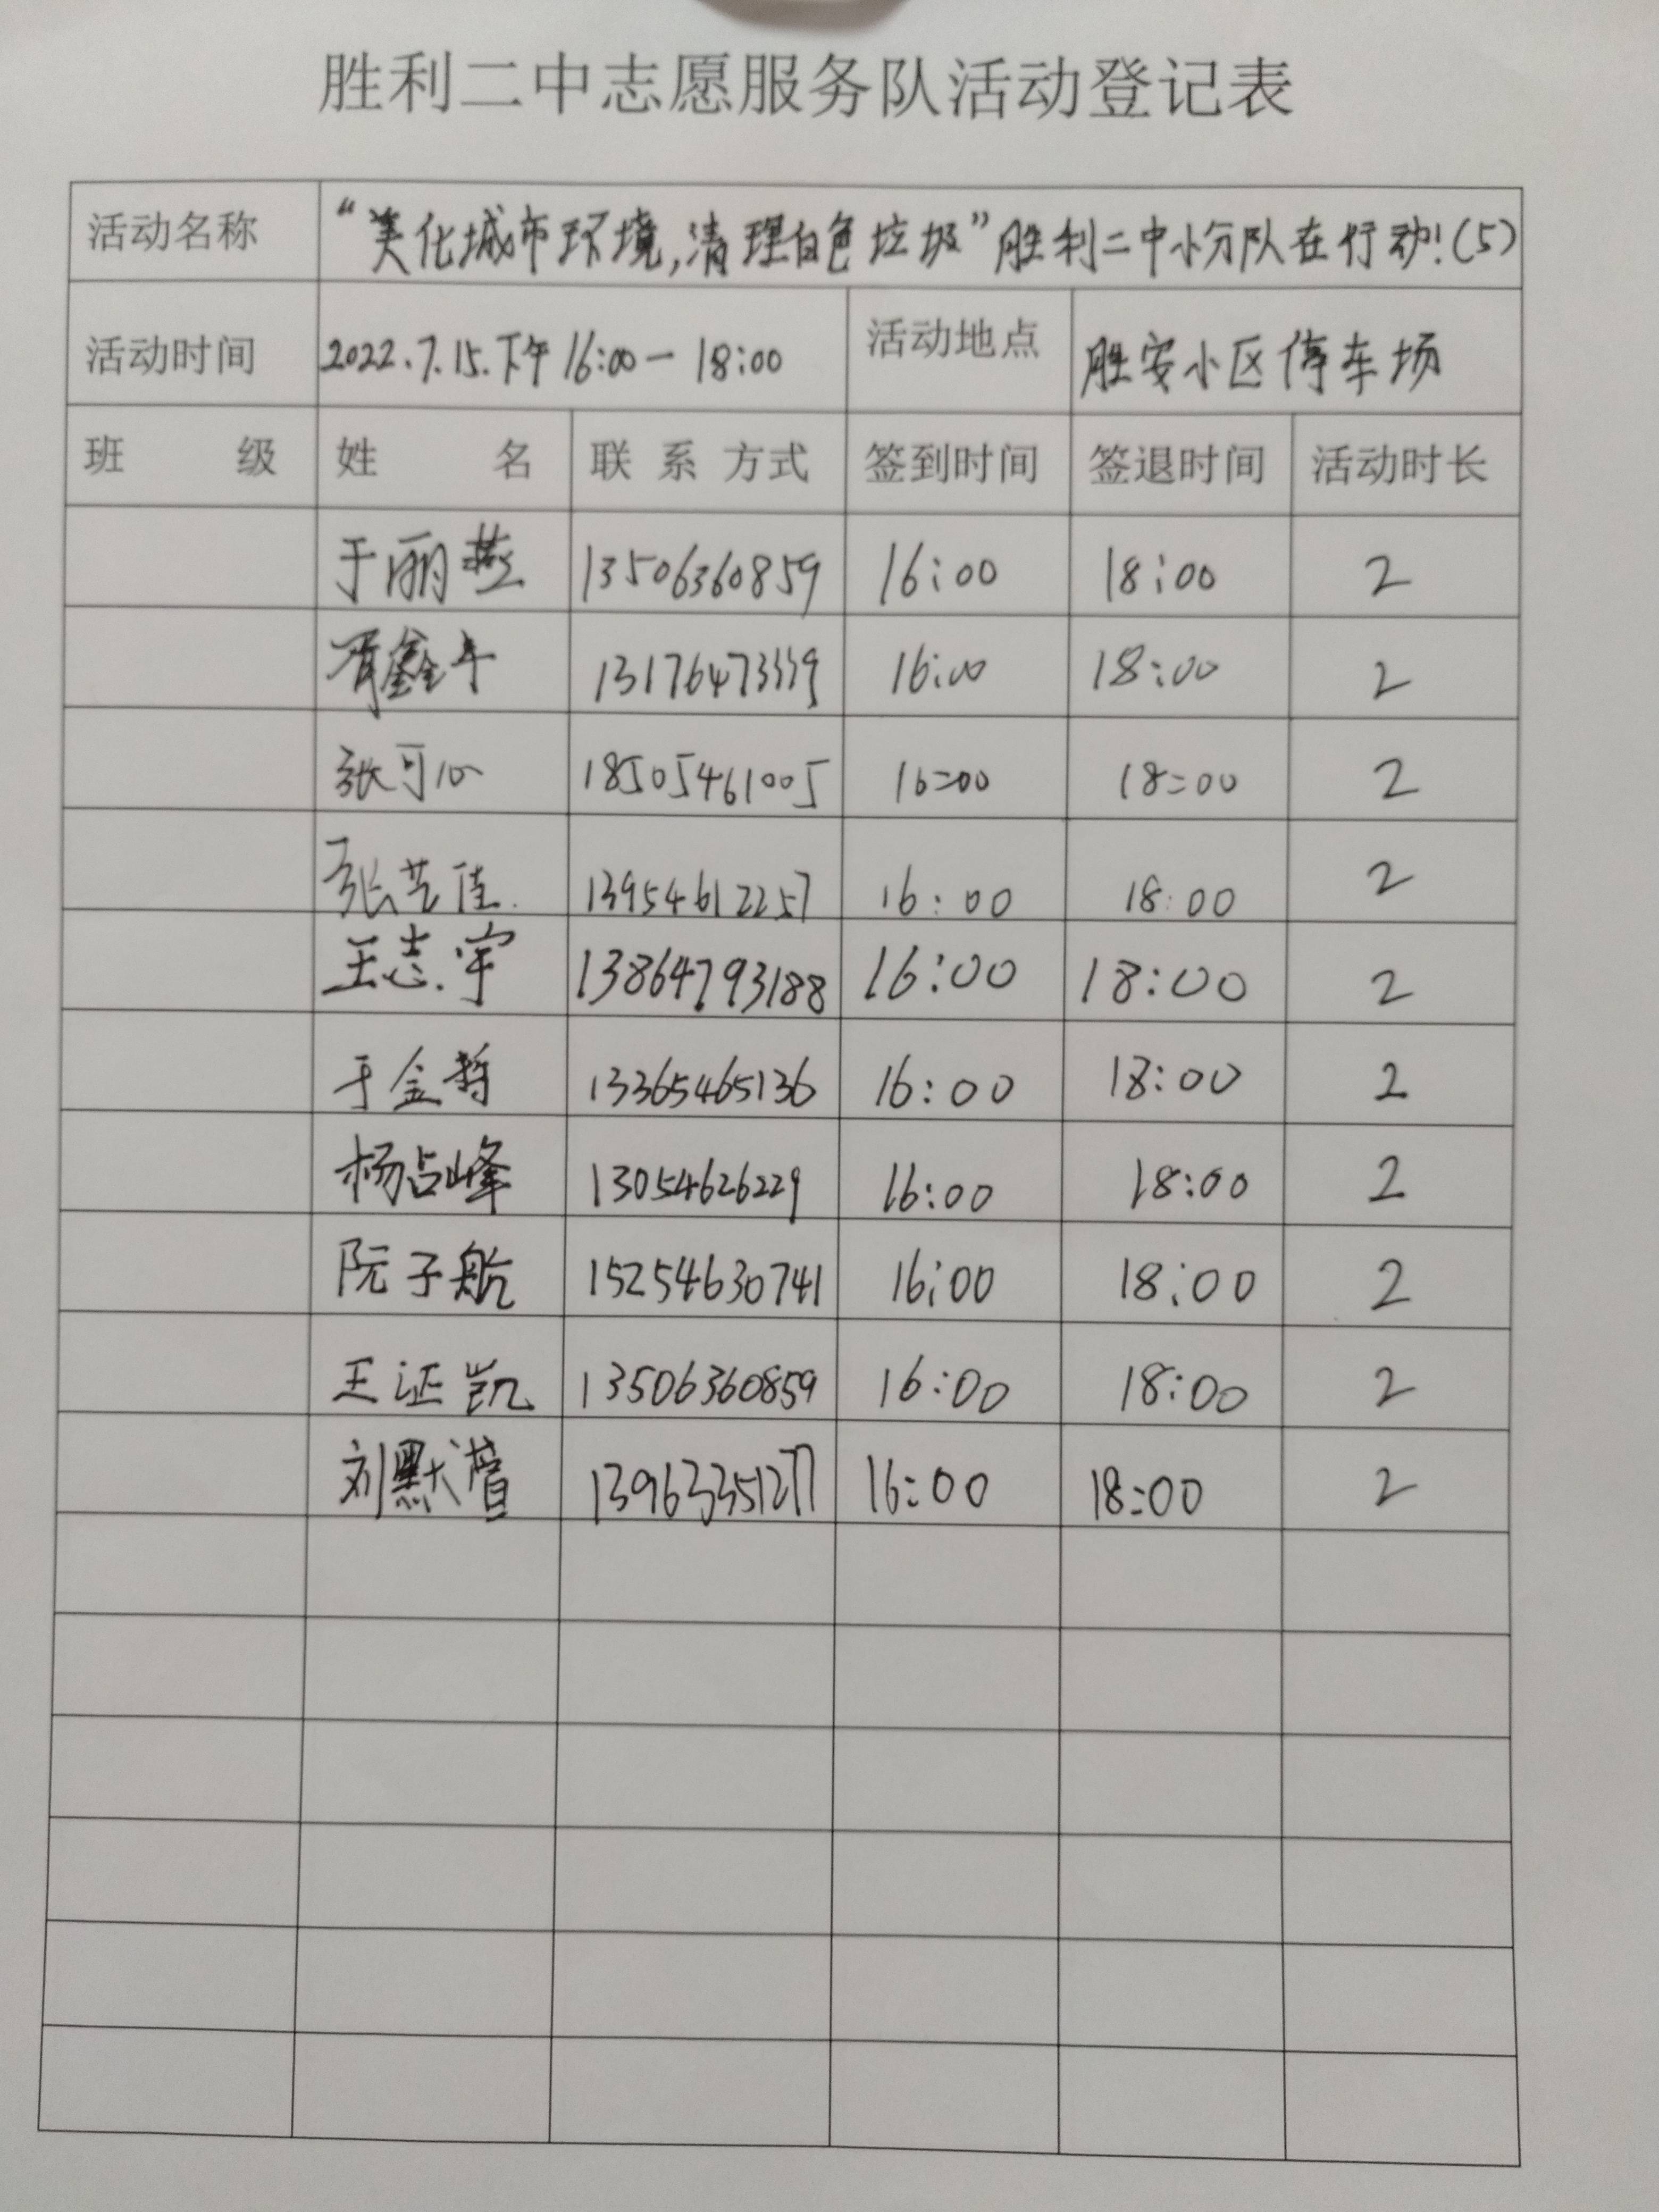 胜利二中志愿服务队活动登记表
活动名称 “美化城市环境,清理白色垃圾”胜利二中小分队在行动!(5)
活动时间 2022.7.15.下午16:00-18:00 活动地点 胜安小区停车场
班 级 姓 名 联系方式 签到时间 签退时间 活动时长
于丽燕 13506360859 16:00 18:00 2
胥鑫 16:00 18:00 2
张可心 18505461005 16:00 18:00 2
张芸佳. 13954612257 16:00 18:00 2
王志宇 13864793188 16:00 18:00 2
于金哲 13365465136 16:00 18:00 2
杨占峰 13054626229 16:00 18:00 2
阮子航 15254630741 16:00 18:00 2
王证凯 13506360859 16:00 18:00 2
刘默 13963351277 16:00 18:00 2